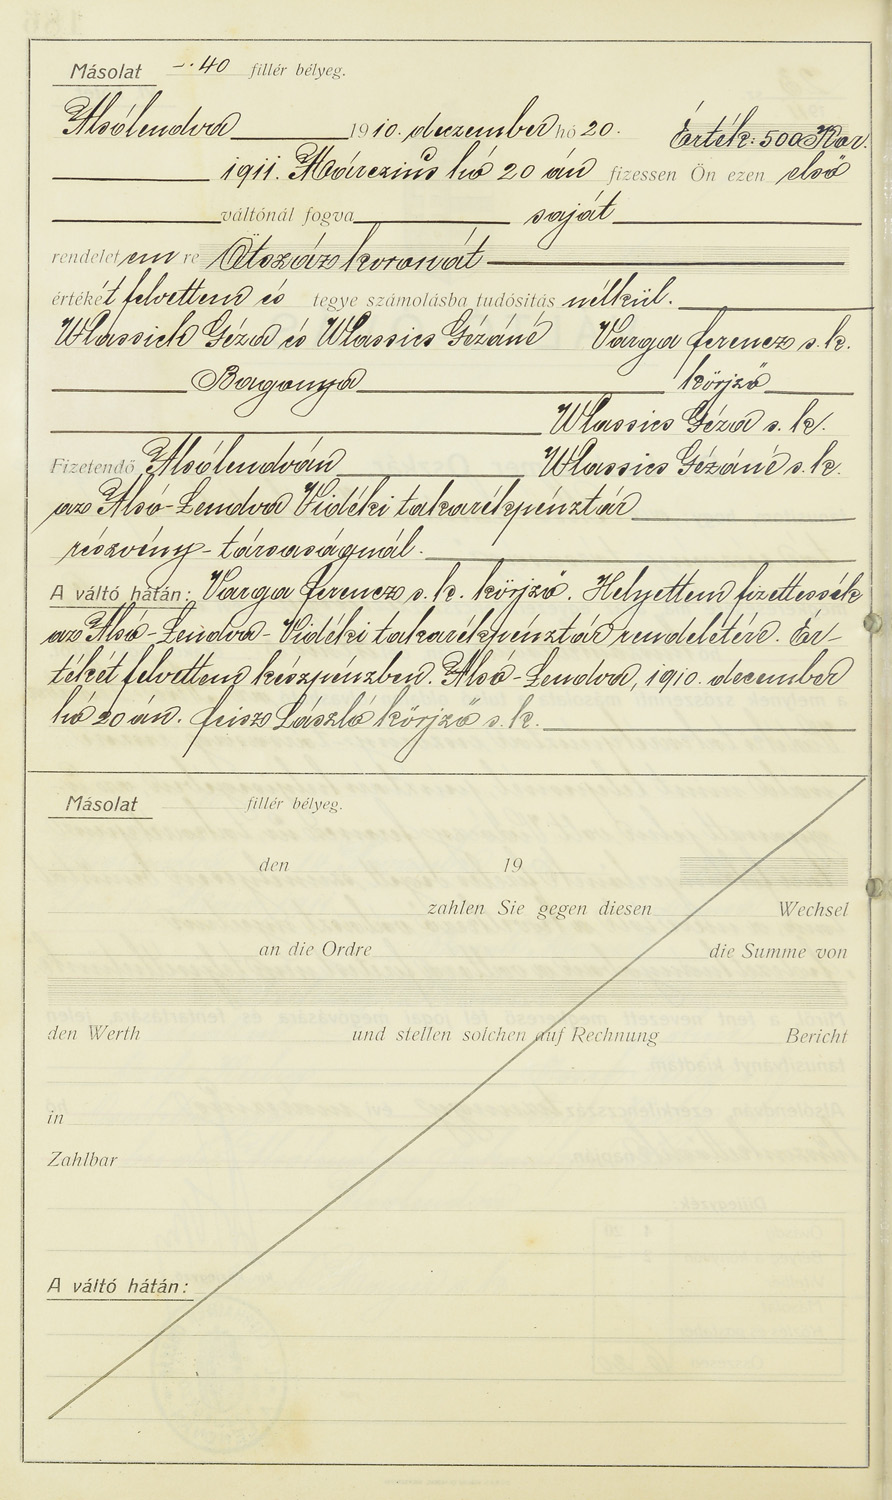 Másolat —·40 fillér bélyeg.
Alsólendva 1910. deczember hó 20. Érték: 500 Kor.
1911. Márczius hó 20 án fizessen Ön ezen első
váltónál fogva saját
rendeletem re Ötszáz koronát
értékét felvettem és tegye számolásba tudósitás nélkül.
Wlassich Géza és Wlassics Gézáné Varga ferencz s. k.
Bagonya körjző
Wlassics Géza s. k.
Fizetendő Alsólendván Wlassics Gézáné s. k.
az Alsó-Lendva Vidéki takarékpénztár
részvény-társaságnál.
A váltó hátán: Varga ferencz s. k. körjző. Helyettem fizettessék
az Alsó-Lendva-Vidéki takarékpénztár rendeletére. Ér-
tékét felvettem készpénzben. Alsó-Lendva, 1910. december
hó 20 án. feisz László körjző s. k.
Másolat fillér bélyeg.
den 19
zahlen Sie gegen diesen Wechsel
an die Ordre die Summe von
den Werth und stellen solchen auf Rechnung Bericht
in
Zahlbar
A váltó hátán: